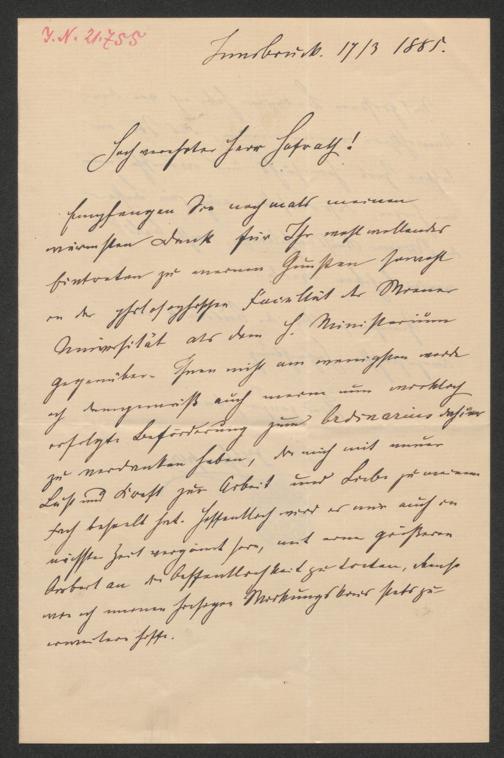 J. N. 21.755
Innsbruck. 17/3 1885.
Hochverehrter Herr Hofrath!
Empfangen Sie nochmals meinen
wärmsten Dank für Ihr wohlwollendes
Eintreten zu meinen Gunsten sowohl
an der philosophischen Facultät der Wiener
Universität als dem h. Ministerium
gegenüber. Ihnen nicht am wenigsten werde
ich demgemäß auch meine nun wirklich
erfolgte Beförderung zum Ordinarius dahier
zu verdanken haben, die mich mit neuer
Lust und Kraft zur Arbeit und Liebe zu meinem
Fach beseelt hat. Hoffentlich wird es mir auch in
nächster Zeit vergönnt sein, mit einer größeren
Arbeit an die Oeffentlichkeit zu treten, ebenso
wie ich meinen hiesigen Wirkungskreis stets zu
erweitern hoffe.